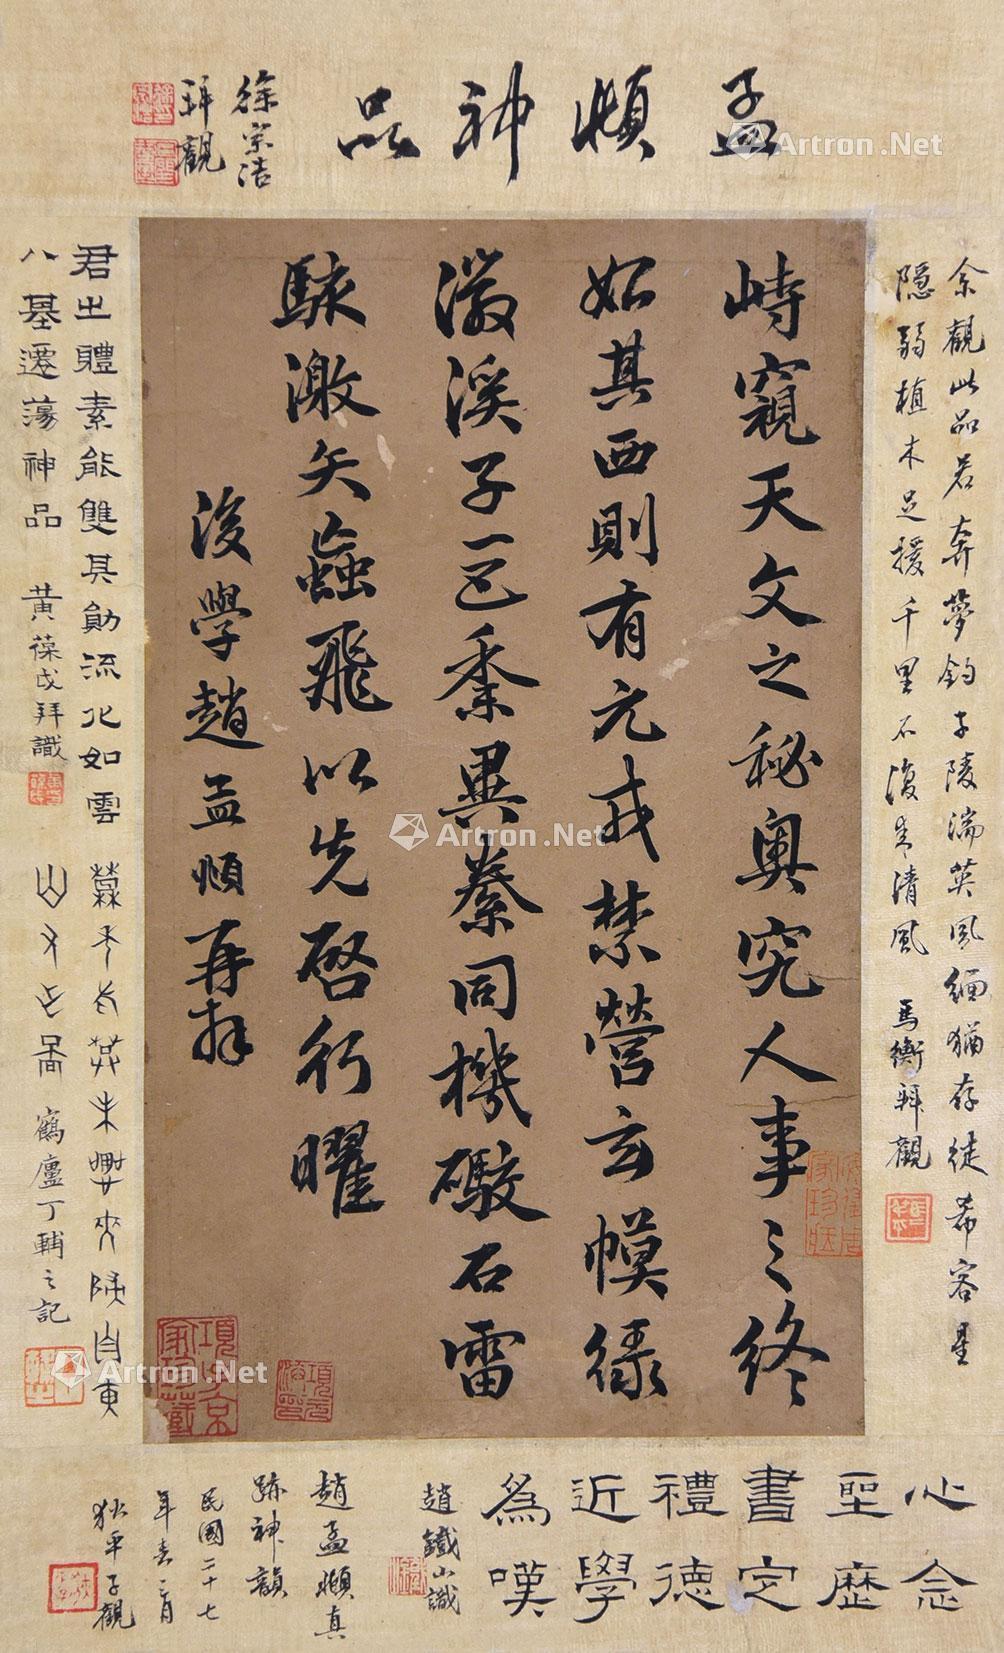 孟頫神品
徐宗浩
拜觀
峙窺天文之秘奧究人事之終
始其西則有元戎禁營玄幙綠
徽溪子巨黍異絭同機礮石雷
駭激矢蝱飛以先啓行曜
後學趙孟頫再拜
余觀此品若奔夢釣子陵濡英風緬猶存徒希客星
隱弱植木足援千里石復生清風 馬衡拜觀
君之體素能雙其勛流化如雲
八基遷蕩神品 黃葆戉拜識
鶴廬丁輔之記
心念
聖歷
書定
禮德
近學
為嘆
趙鐵山識
趙孟頫真
跡神韻
民國二十七
年春二月
狄平子觀
Artron.Net
Artron.Net
Artron.Net